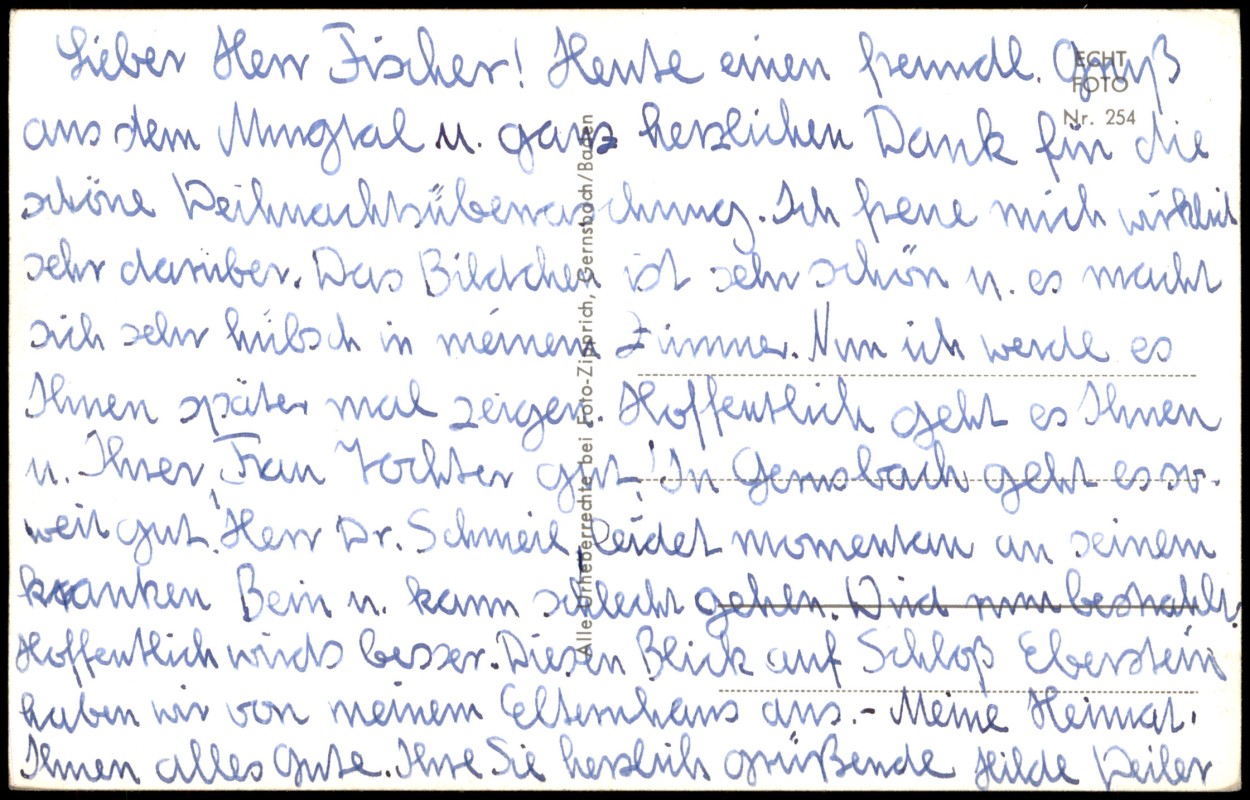 Lieber Herr Fischer! Heute einen freundl. Gruß
aus dem Murgtal u. ganz herzlichen Dank für die
schöne Weihnachtsüberraschung. Ich freue mich wirklich
sehr darüber. Das Bildchen ist sehr schön u. es macht
sich sehr hübsch in meinem Zimmer. Nun ich werde es
Ihnen später mal zeigen. Hoffentlich geht es Ihnen
u. Ihrer Frau Tochter gut! In Gernsbach geht es so-
weit gut. Herr Dr. Schmeil leidet momentan an seinem
kranken Bein u. kann schlecht gehen. Wird nun bestrahlt.
Hoffentlich wirds besser. Diesen Blick auf Schloß Eberstein
haben wir von meinem Elternhaus aus.- Meine Heimat.
Ihnen alles Gute. Ihre Sie herzlich grüßende Hilde Weiler
ECHT
FOTO
Nr. 254
Alle Urheberrechte bei Foto-Zipprich, Gernsbach/Baden